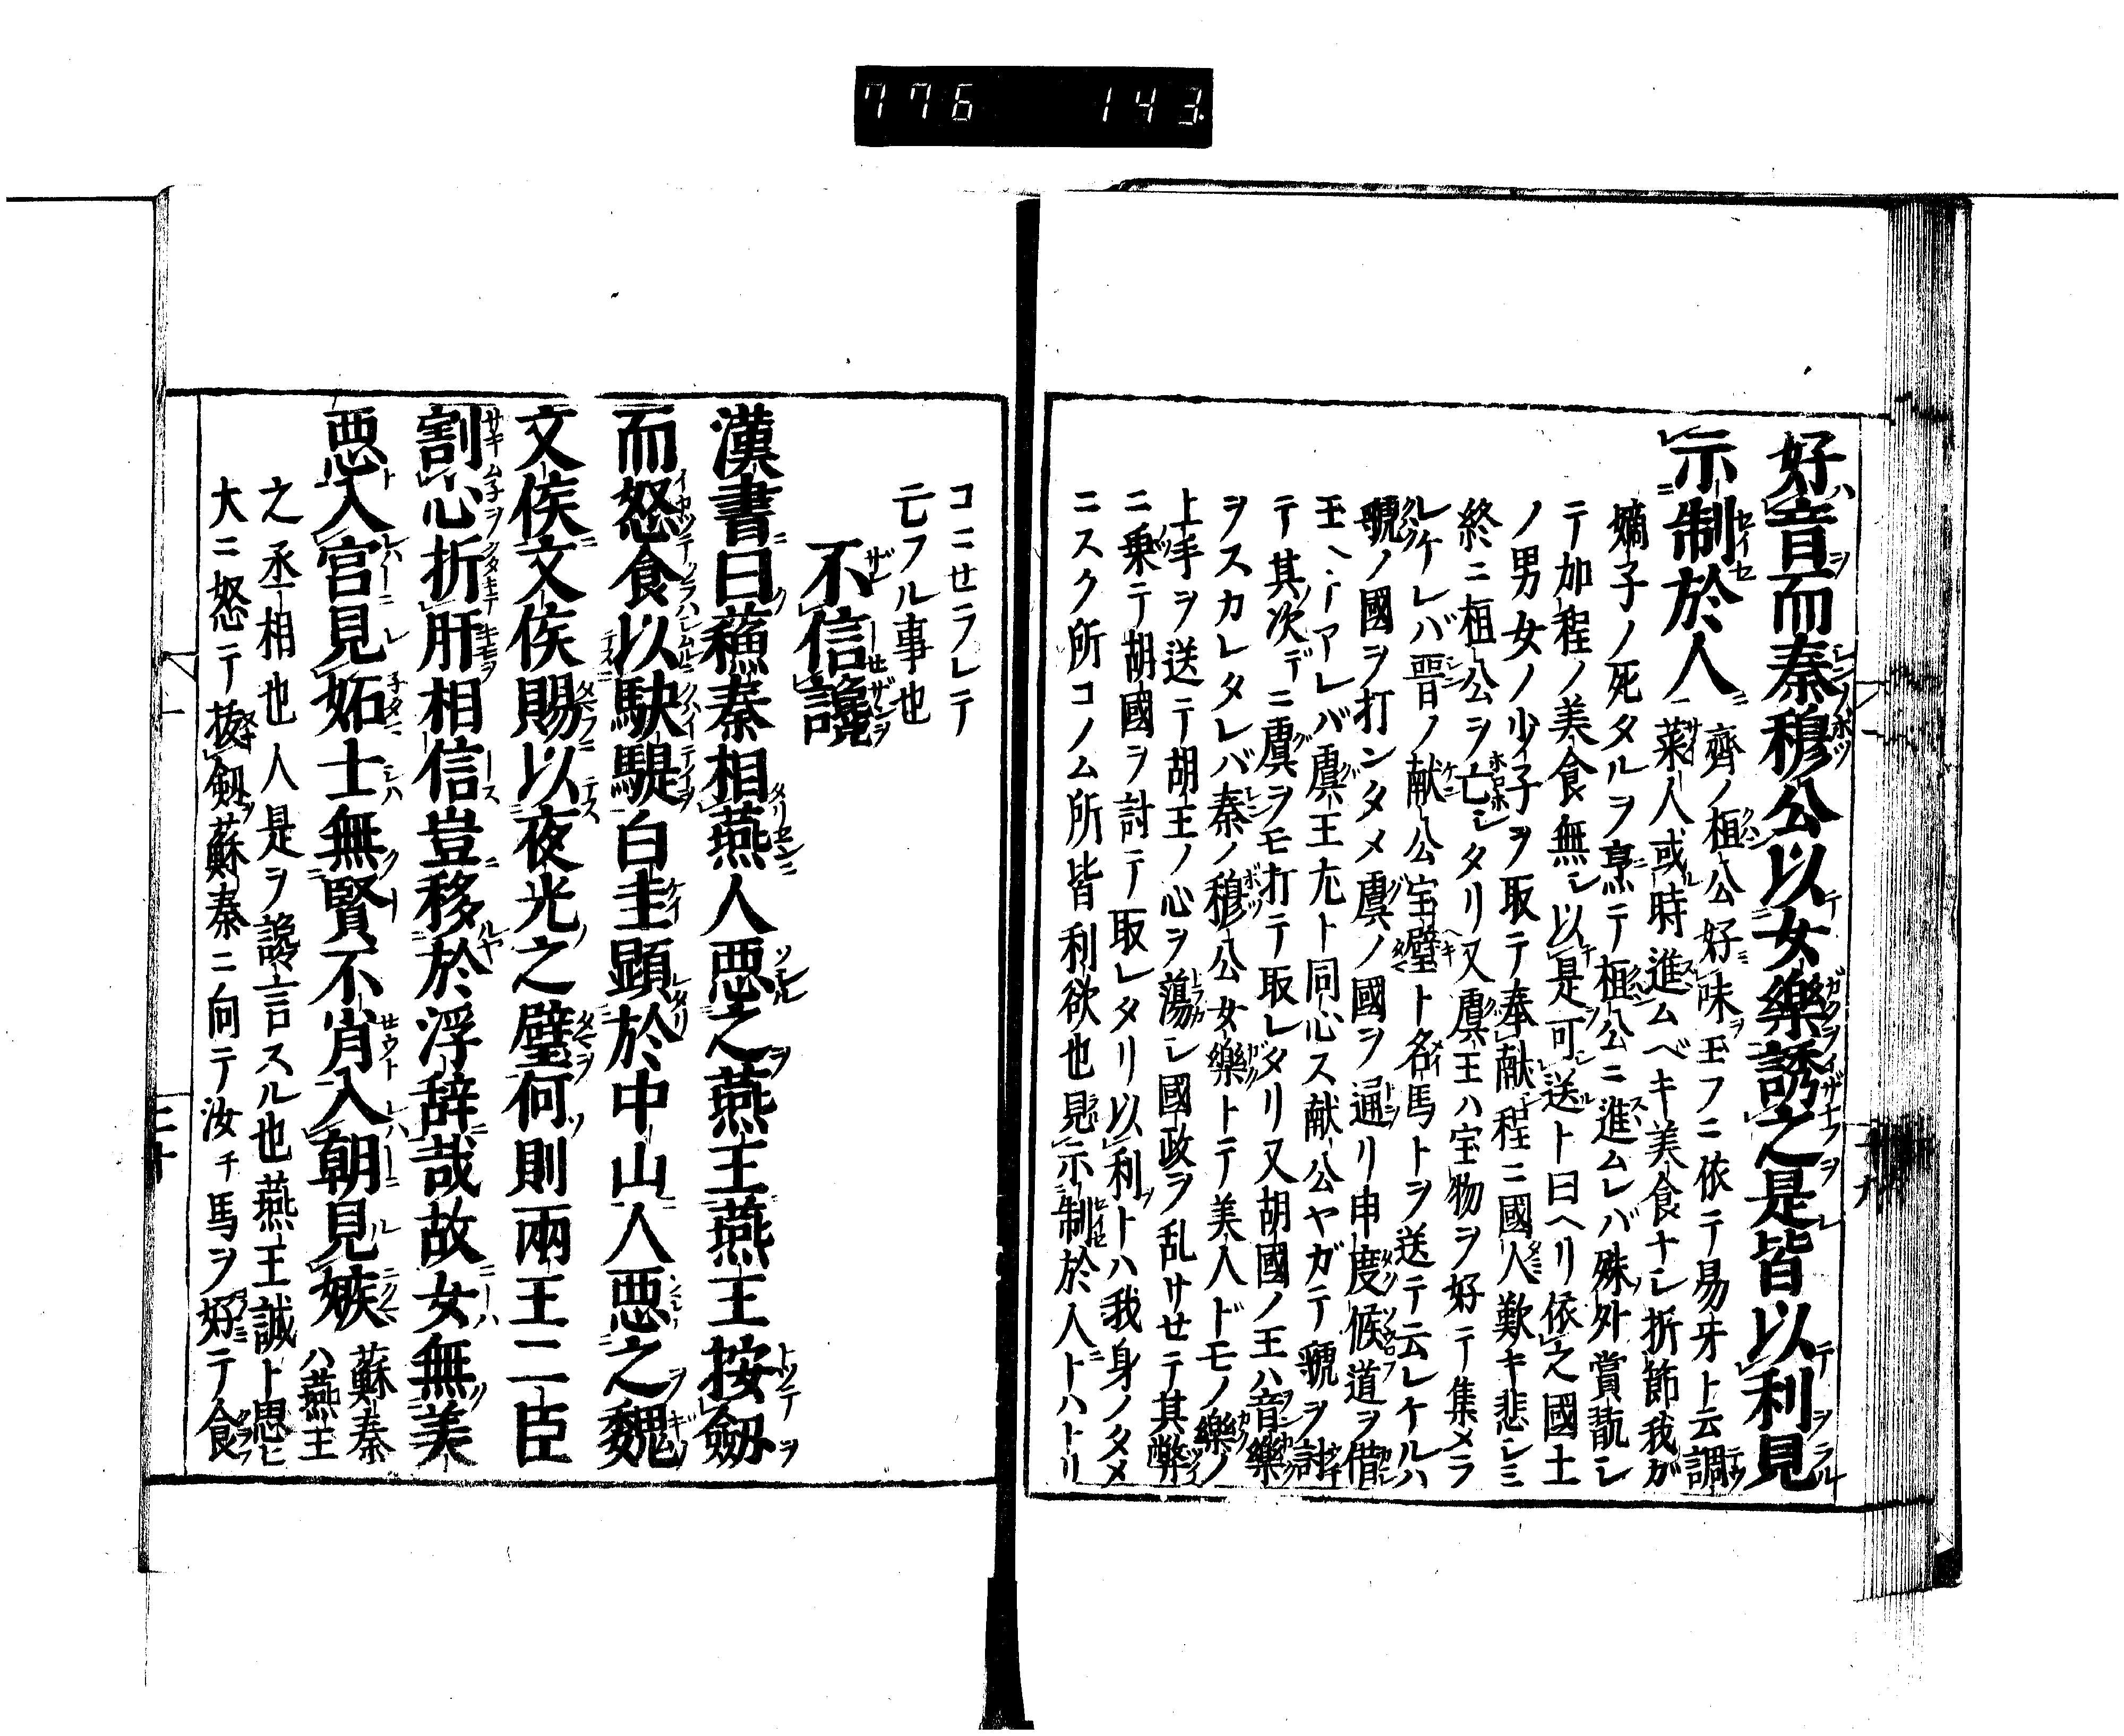 776 143
好音而秦穆公以女樂誘之是皆以利見
示制於人
齊ノ桓公好味ヲ玉フニ依テ易牙ト云調
菜人或時進ムベキ美食ナシ折節我ガ
嫡子ノ死タルヲ烹テ桓公ニ進ムレバ殊外賞翫シ
テ加程ノ美食無シ以是可送ト曰ヘリ依之國土
ノ男女ノ少子ヲ取テ奉献程ニ國人歎キ悲シミ
終ニ桓公ヲ亡シタリ又虞王ハ宝物ヲ好テ集メラ
ルケレバ晋ノ献公宝璧ト名馬トヲ送テ云レケルハ
虢ノ國ヲ打ンタメ虞ノ國ヲ通リ申度候道ヲ借
玉ヘトアレバ虞王尤ト同心ス献公ヤガテ虢ヲ討
テ其次デニ虞ヲモ打テ取レタリ又胡國ノ王ハ音樂
ヲスカレタレバ秦ノ穆公女樂トテ美人ドモノ樂ノ
上手ヲ送テ胡王ノ心ヲ蕩シ國政ヲ乱サセテ其弊
ニ乗テ胡國ヲ討テ取レタリ以利トハ我身ノタメ
ニスク所コノム所皆利欲也見示制於人トハトリ
コニセラレテ
亡フル事也
不信讒
漢書曰蘓秦相燕人惡之燕王燕王按劔
而怒食以駃騠白圭顕於中山人惡之魏
文侯文侯賜以夜光之璧何則兩王二臣
割心折肝相信豈移於浮辞哉故女無美
惡入宮見妬士無賢不肖入朝見嫉
蘇秦
ハ燕王
之丞相也人是ヲ讒言スル也燕王誠ト思ヒ
大ニ怒テ按劔蘇秦ニ向テ汝チ馬ヲ好テ食